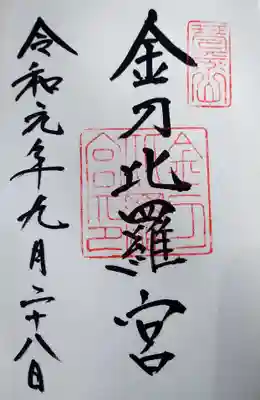 金刀比羅宮
令和元年九月二十八日